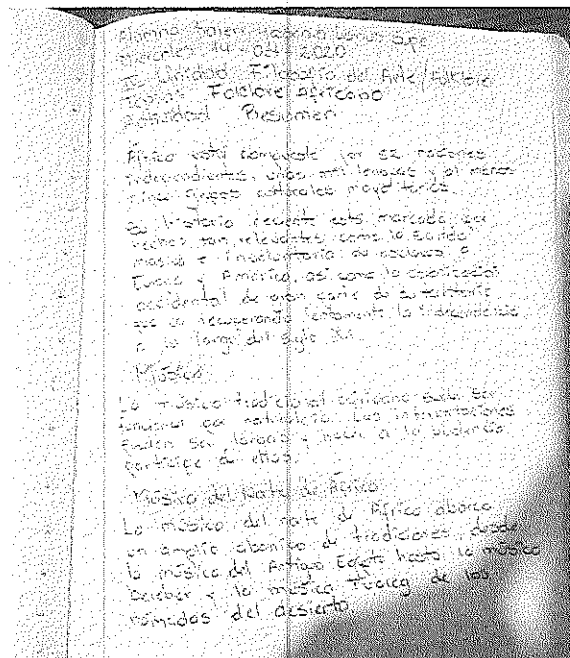 Alumna
Miércoles 14-04-2020
II Unidad Filosofía del Arte/Folklore
Folklore Africano
Actividad Resumen
África está compuesta por 52 naciones
independientes, unas mil lenguas y al menos
grupos culturales mayoritarios.
Su historia reciente está marcada por
hechos tan relevantes como la salida
masiva e involuntaria de esclavos a
Europa y América, así como la colonización
occidental de gran parte de su territorio
que va recuperando lentamente la independencia
a lo largo del siglo XX.
Música
La música tradicional africana suele ser
funcional por naturaleza. Las interpretaciones
suelen ser largas y hacen a la audiencia
partícipe de ellas.
Música del Norte de África
La música del norte de África abarca
un amplio abanico de tradiciones, desde
la música del Antiguo Egipto hasta la música
Bereber y la música Tuareg de los
nómadas del desierto.